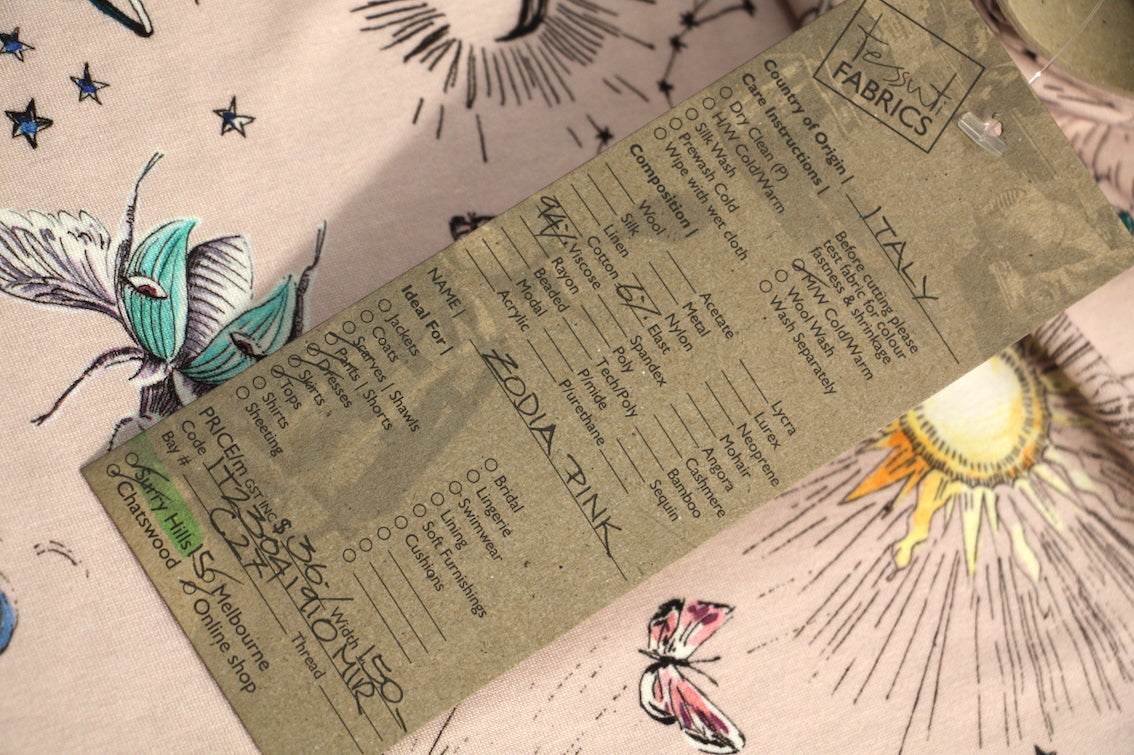 tessuti
FABRICS
Country of Origin | ITALY
Care Instructions |
Before cutting please
test fabric for colour
fastness & shrinkage
Dry Clean (P)
H/W Cold/Warm
Silk Wash
Prewash Cold
Wipe with wet cloth
M/W Cold/Warm
Wool Wash
Wash Separately
Composition |
Wool
Silk
Linen
Cotton
94% Viscose
Rayon
Beaded
Modal
Acrylic
Acetate
Metal
Nylon
6% Elast
Spandex
Poly
Tech/Poly
P/mide
P/urethane
Lycra
Lurex
Neoprene
Mohair
Angora
Cashmere
Bamboo
Sequin
NAME | ZODIA PINK
Ideal For |
Jackets
Coats
Scarves | Shawls
Pants | Shorts
Dresses
Skirts
Tops
Shirts
Sheeting
Bridal
Lingerie
Swimwear
Lining
Soft Furnishings
Cushions
PRICE/m GST INC $ 36.- Width 150-
Code
Bay # C27
Thread
Surry Hills
Melbourne
Chatswood
Online shop